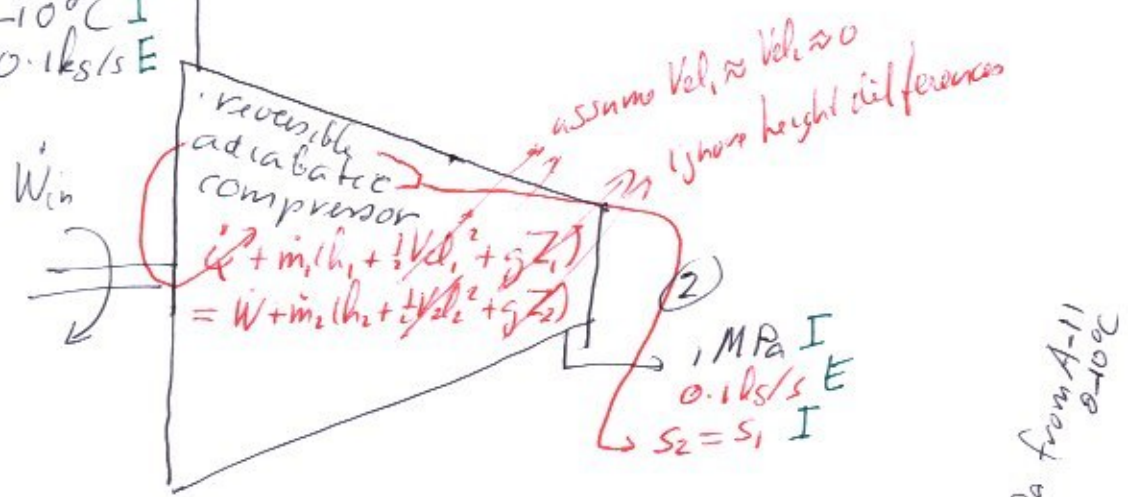 -10°C I
0.1kg/s E
Ẇin
reversible
adiabatic
compressor
assume Vel₁ ≈ Vel₂ ≈ 0
ignore height differences
Q̇ + ṁ₁(h₁ + ½Vel₁² + gZ₁)
= Ẇ + ṁ₂(h₂ + ½Vel₂² + gZ₂)
2
1 MPa I
0.1kg/s E
s₂ = s₁ I
from A-11